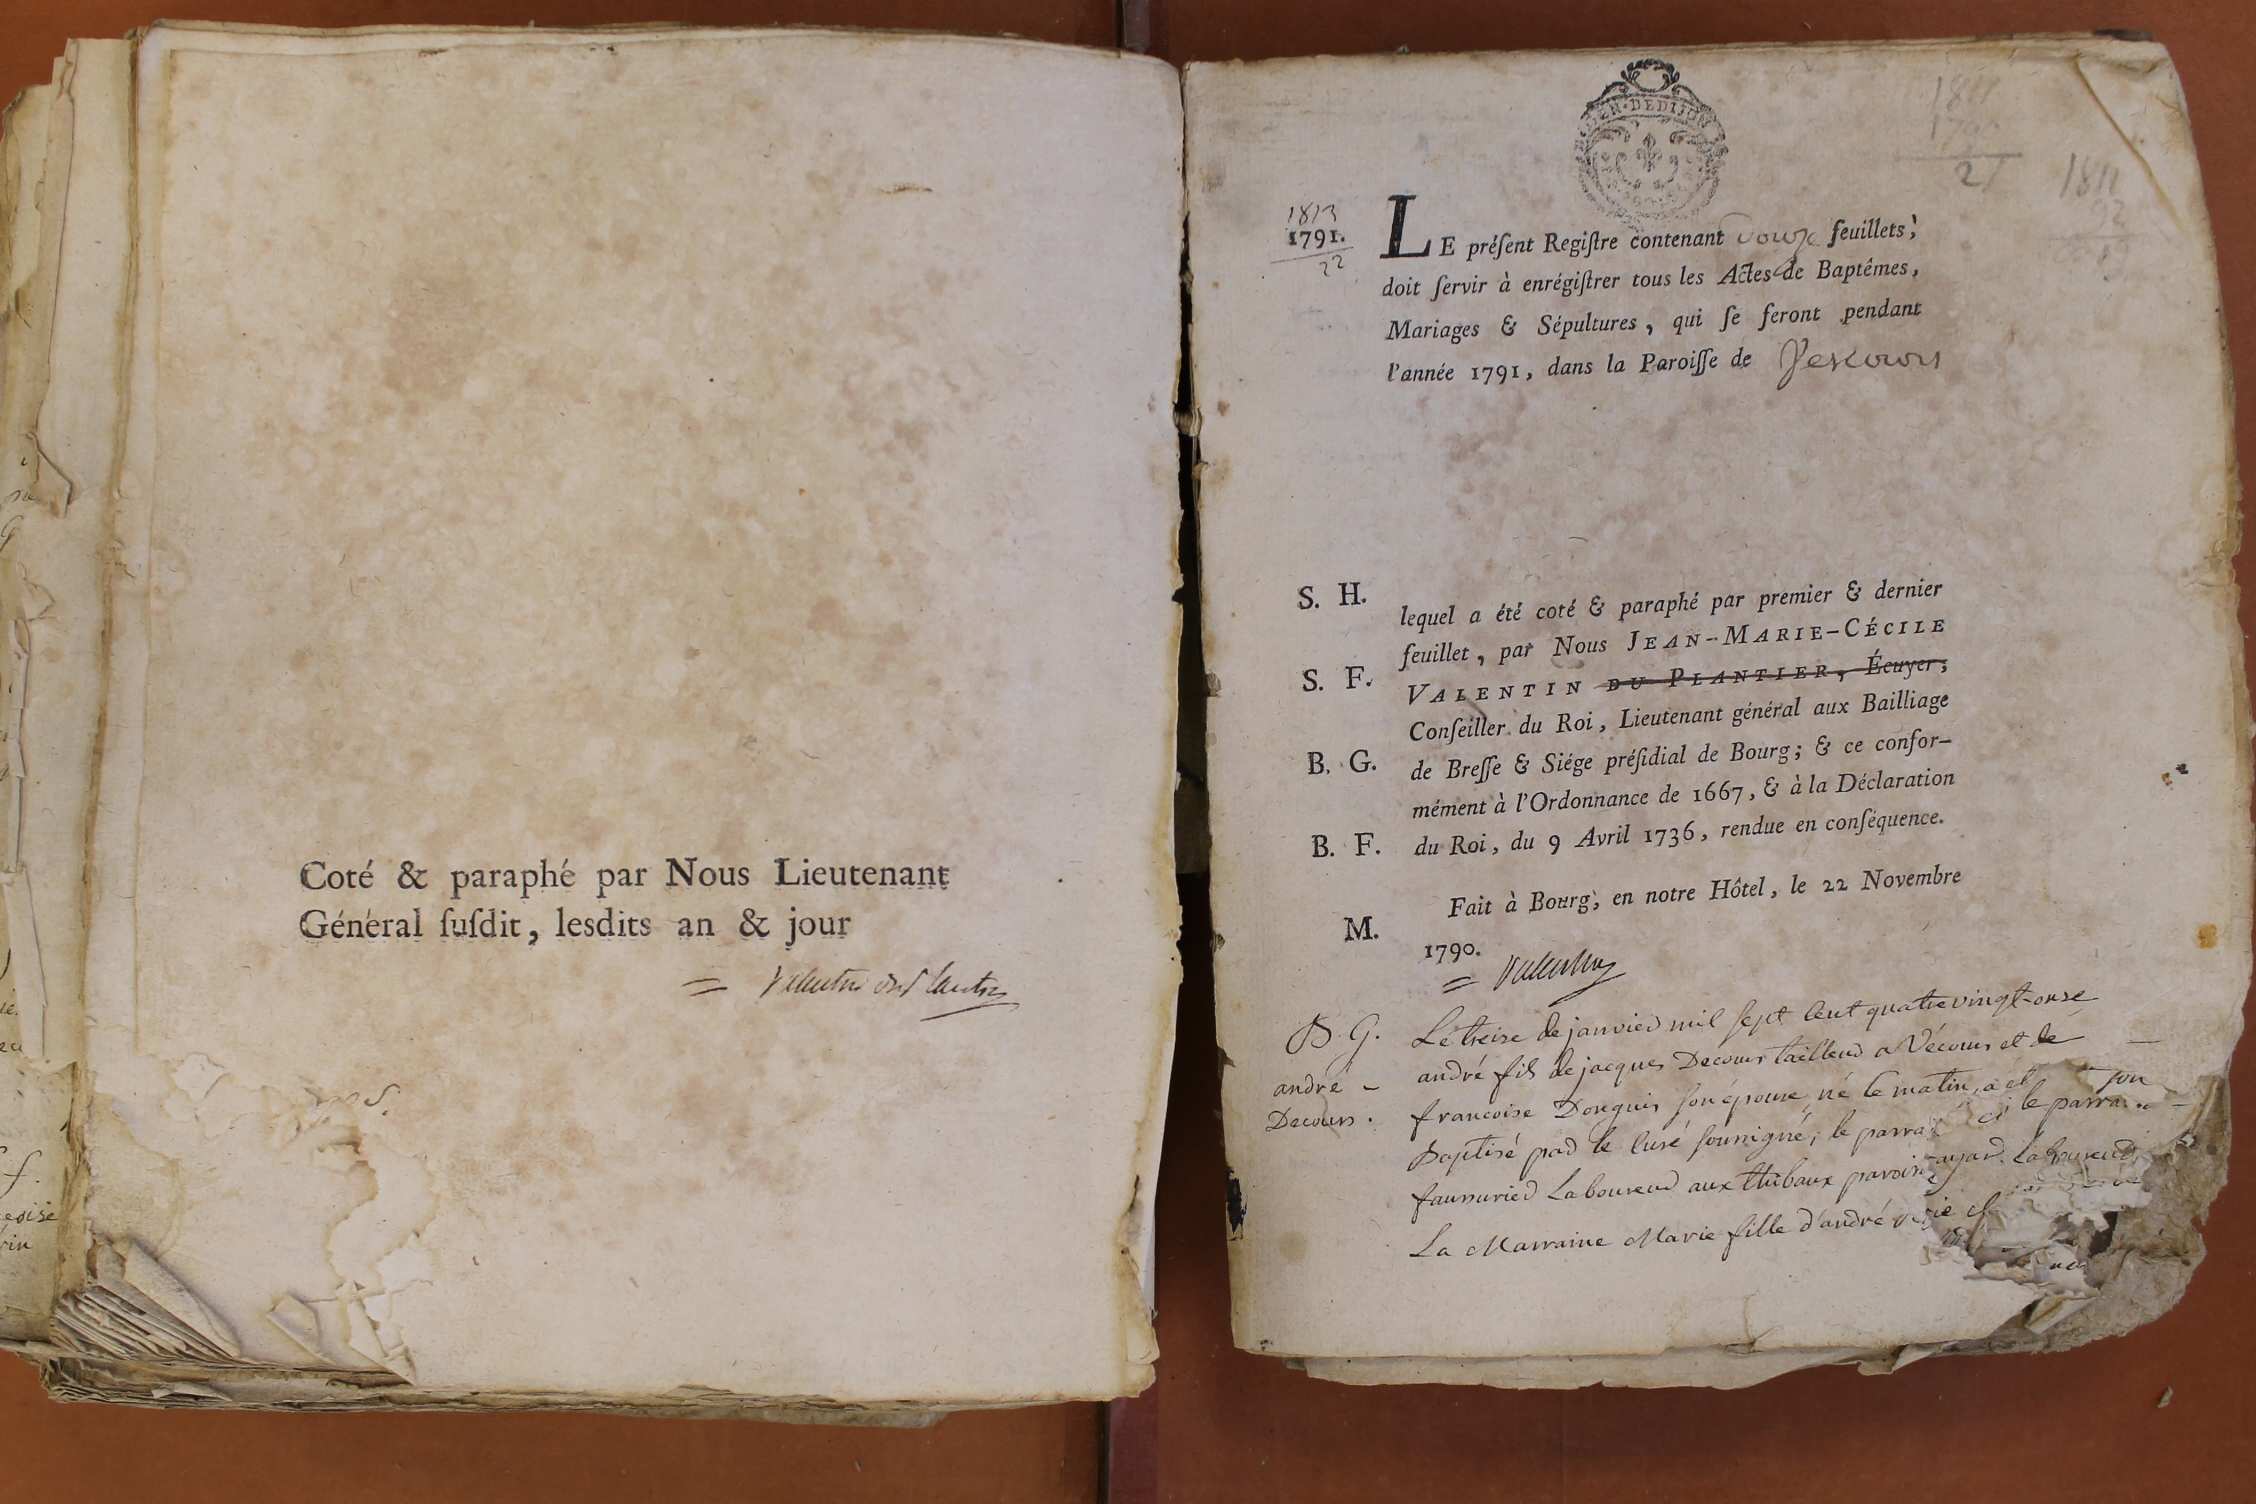 Coté & paraphé par Nous Lieutenant
Général ſuſdit, lesdits an & jour
GEN·DEDIJON
1811
27
1811
92
1813
1791.
22
LE préſent Regiſtre contenant douze feuillets;
doit ſervir à enrégiſtrer tous les Actes de Baptêmes,
Mariages & Sépultures, qui ſe feront pendant
l'année 1791, dans la Paroiſſe de Vescours
S. H.
lequel a été coté & paraphé par premier & dernier
feuillet, par Nous JEAN-MARIE-CÉCILE
S. F.
VALENTIN DU PLANTIER, Écuyer,
Conſeiller du Roi, Lieutenant général aux Bailliage
B. G.
de Breſſe & Siége préſidial de Bourg; & ce confor-
mément à l'Ordonnance de 1667, & à la Déclaration
B. F.
du Roi, du 9 Avril 1736, rendue en conſéquence.
Fait à Bourg, en notre Hôtel, le 22 Novembre
M.
1790.
= Valentin
B. G.
andré -
Decours.
Le treize de janvier mil sept cent quatrevingt-onze
andré fils de jacques Decours tailleur a Vécours et de
francoise Donguis son épouse né le matin, a et
Baptisé par le curé soussigné; le parra
Laboureur aux thibaux parois
La Marraine Marie fille d'andré